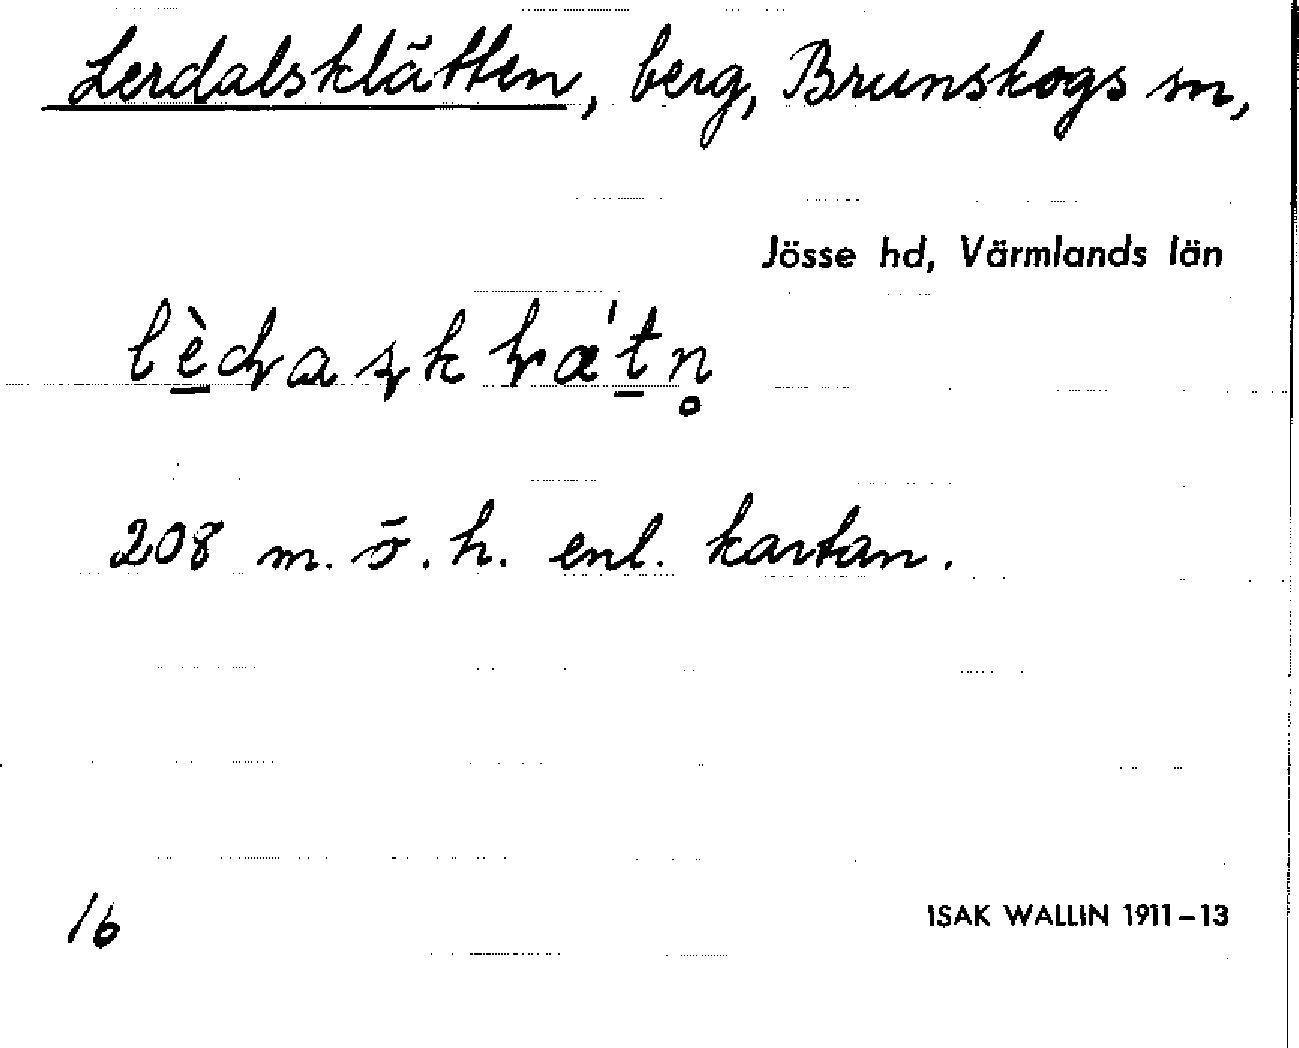 Lerdalsklätten, berg, Brunskogs sn,
Jösse hd, Värmlands län
208 m. ö. h. enl. kartan.
16
ISAK WALLIN 1911–13